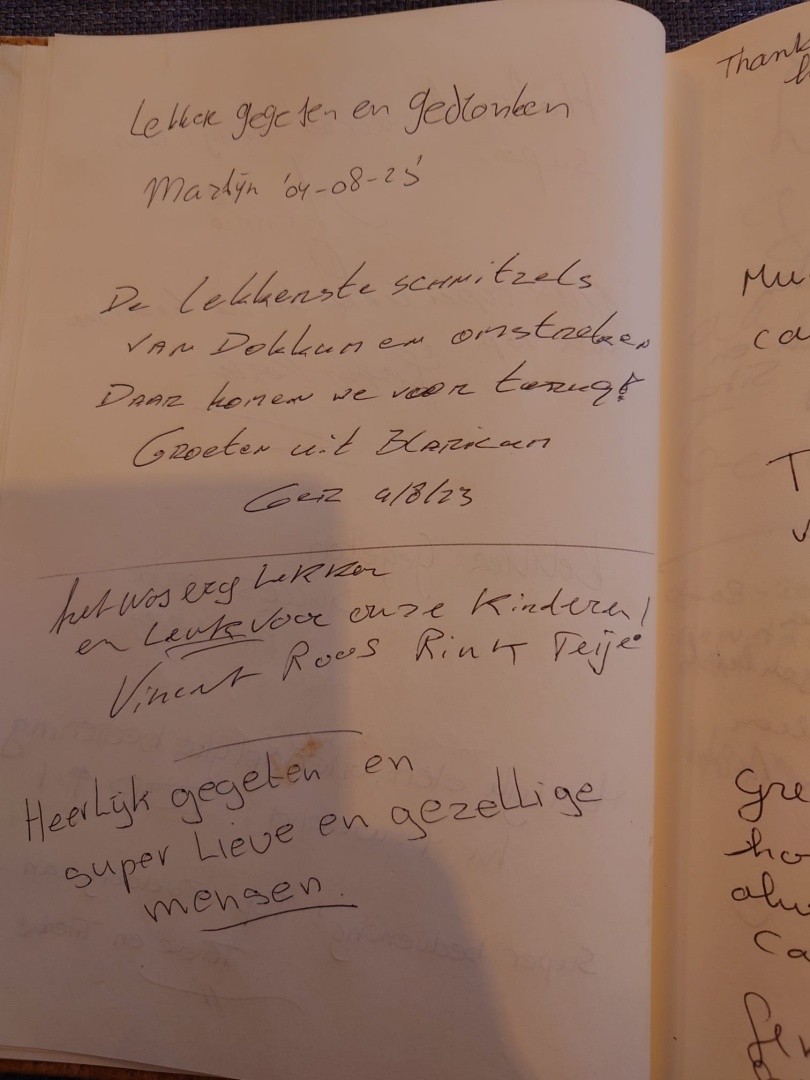 Lekker gegeten en gedronken
Martijn '04-08-23'
De Lekkerste schnitzels
van Dokkum en omstreken
Daar komen we voor terug!
Groeten uit Blaricum
Ger 4/8/23
het was erg Lekker
en Leuk voor onze Kinderen!
Vincent Roos Rink Teije
Heerlijk gegeten en
super Lieve en gezellige
mensen.
Thank
Mu
ca
T
v
Gre
ho
Ca